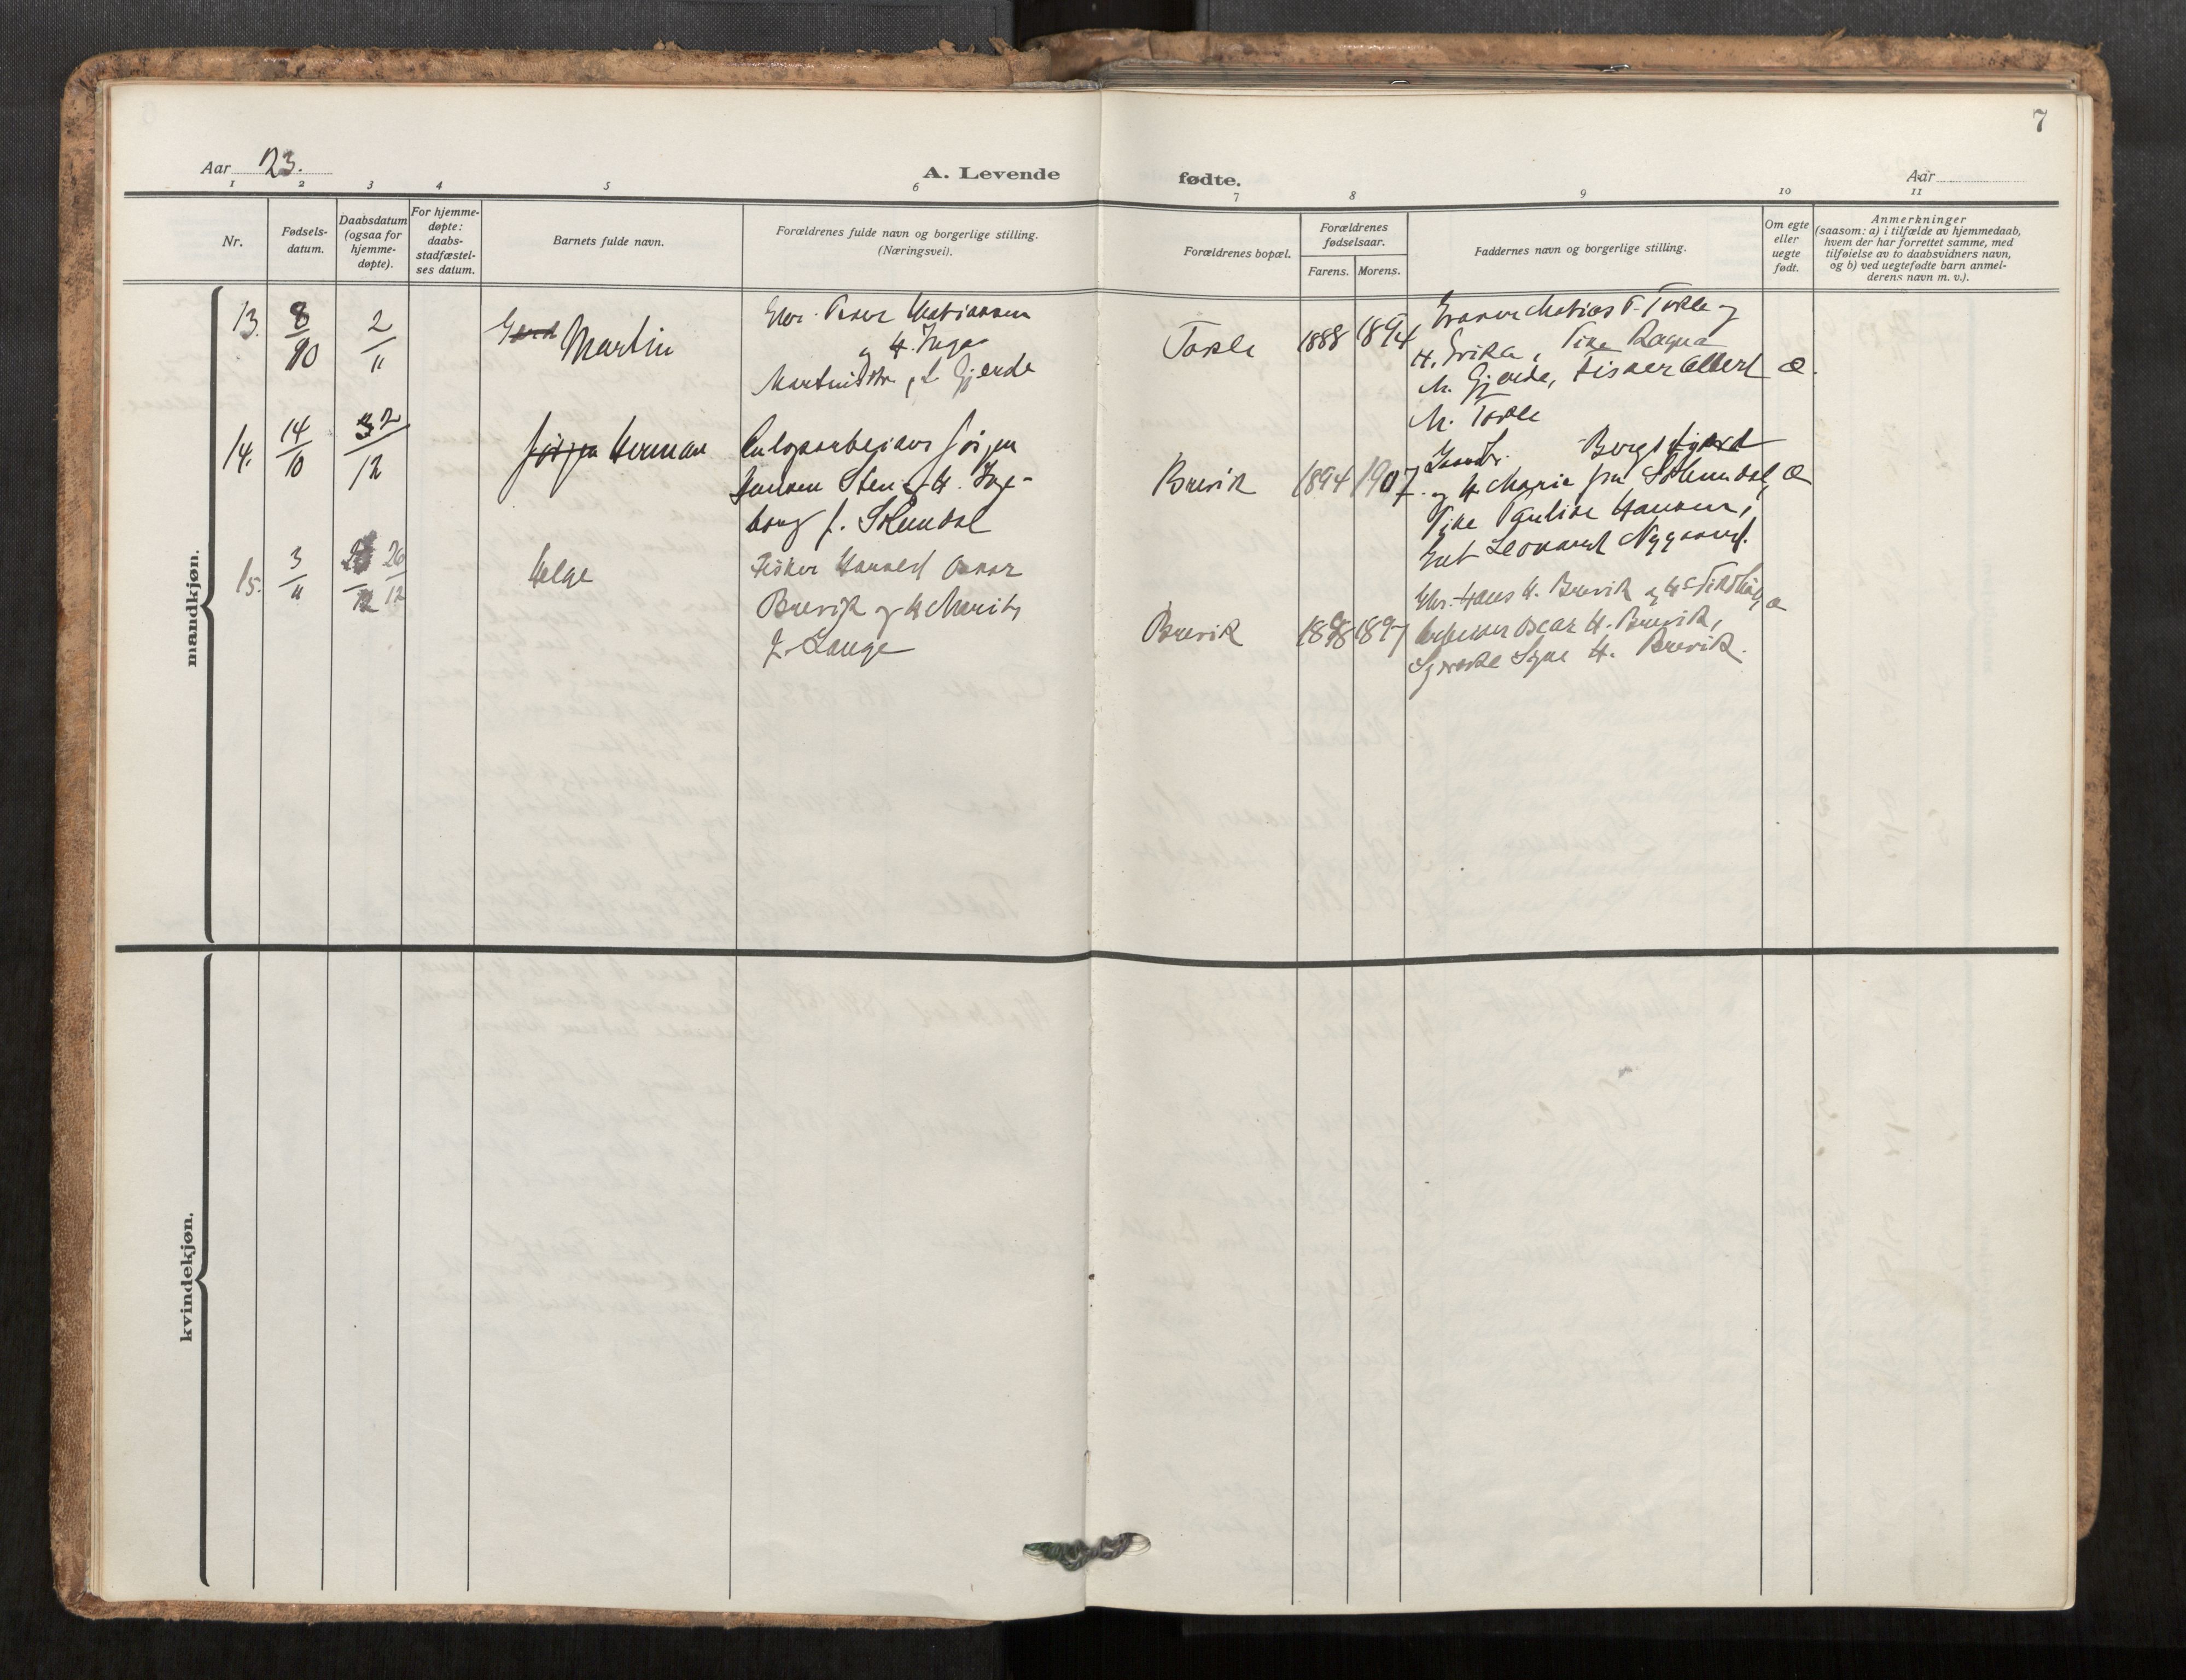 7
Aar 23.
A. Levende
fødte.
Aar
1 2 3 4 5 6 7 8 9 10 11
Nr.
Fødsels-
datum.
Daabsdatum
(ogsaa for
hjemme-
døpte).
For hjemme-
døpte:
daabs-
stadfæstel-
ses datum.
Barnets fulde navn.
Forældrenes fulde navn og borgerlige stilling.
(Næringsvei).
Forældrenes bopæl.
Forældrenes
fødselsaar.
Farens. Morens.
Faddernes navn og borgerlige stilling.
Om egte
eller
uegte
født.
Anmerkninger
(saasom: a) i tilfælde av hjemmedaab,
hvem der har forrettet samme, med
tilføielse av to daabsvidners navn,
og b) ved uegtefødte barn anmel-
derens navn m. v.).
mandkjøn.
13. 8/10 2/11
Martin
Matiassen
og H. Inga
Gjerde
Torle 1888 1894
Matias T. Torle og
H. Erika, Pike Ragna
M. Gjerde, Fisker Albert
M. Torle
Æ.
14. 14/10 2/12
Jørgen Herman
Jørgen
Jensen Sten og H. Inge-
borg f. Solemdal
Brevik 1894 1907
og H. Marie fra Solemdal,
Pike Pauline Hansen,
Leonard Nygaard.
Æ
15. 3/11 26/12
Helge
Fisker Oskar
Brevik og H. Marit
f. Lange
Brevik 1898 1897
Hans H. Brevik og H.
Arbeider Oscar H. Brevik,
Signe H. Brevik.
Æ
kvindekjøn.